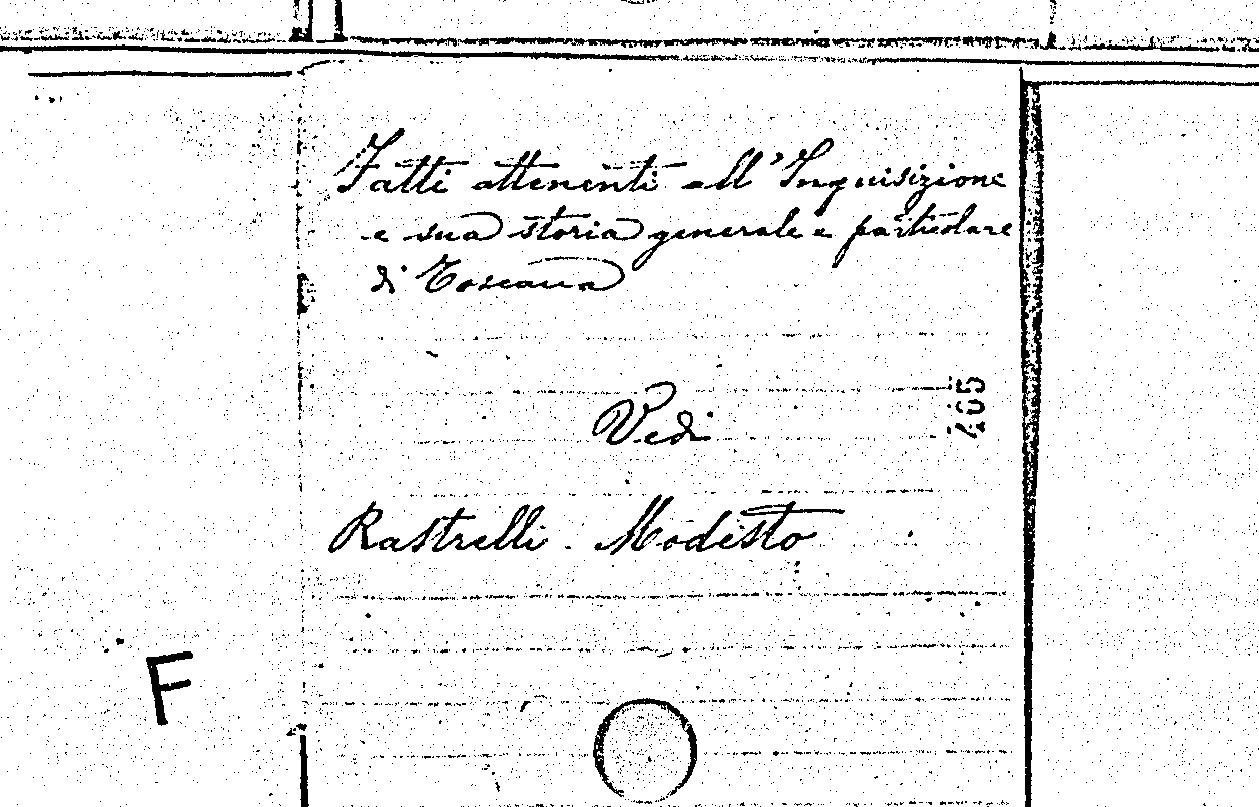 Fatti attenenti all'Inquisizione
e sua storia generale e particolare
di Toscana
Vedi
465
Rastrelli. Modesto
F